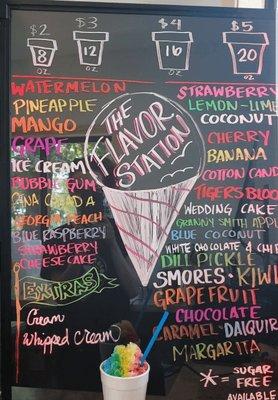 $2 $3 $4 $5
8 12 16 20
OZ OZ OZ OZ
THE
FLAVOR
STATION
WATERMELON
PINEAPPLE
MANGO
GRAPE
ICE CREAM
BUBBLE GUM
PINA COLADA
GEORGIA PEACH
BLUE RASPBERRY
STRAWBERRY
CHEESECAKE
EXTRAS
Cream
Whipped Cream
STRAWBERRY
LEMON-LIME
COCONUT
CHERRY
BANANA
COTTON CANDY
TIGERS BLOOD
WEDDING CAKE
GRANNY SMITH APPLE
BLUE COCONUT
WHITE CHOCOLATE & CHIP
DILL PICKLE
SMORES • KIWI
GRAPEFRUIT
CHOCOLATE
CARAMEL • DAIQUIRI
MARGARITA
* = SUGAR
FREE
AVAILABLE